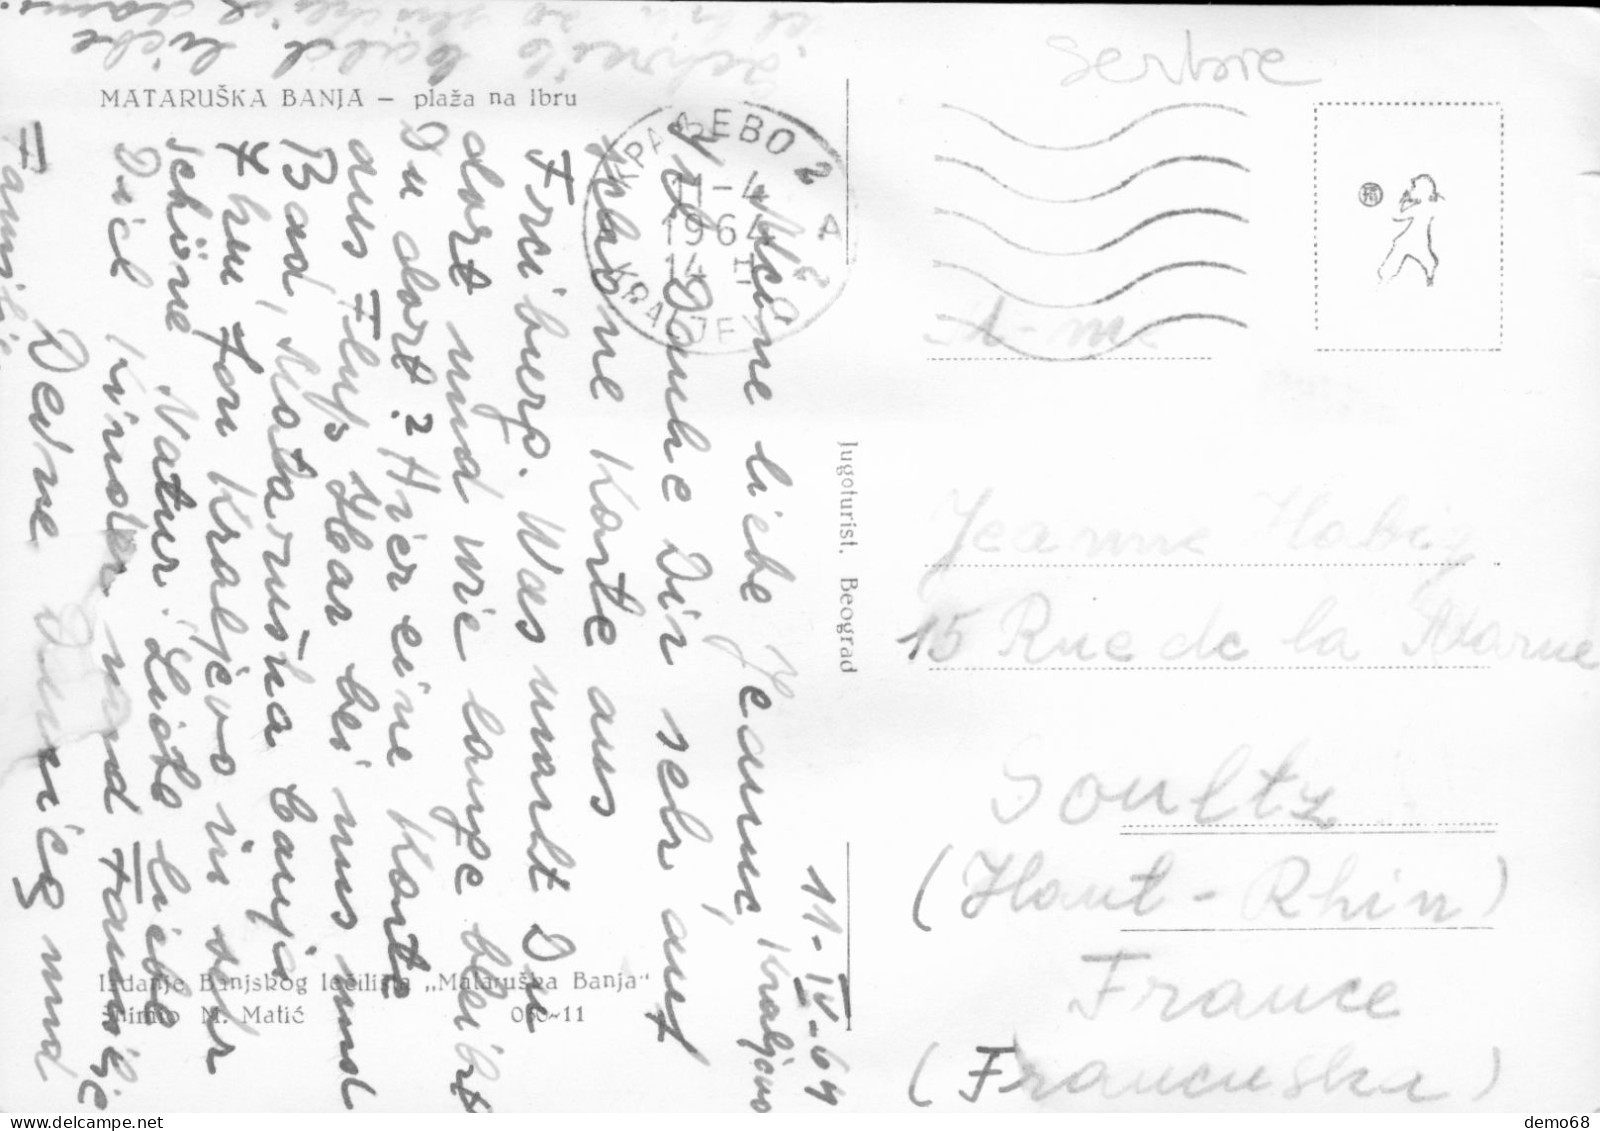 MATARUŠKA BANJA — plaža na Ibru
Serbie
КРАЉЕВО 2
11-4
1964
14 H
A
KRALJEVO 2
Kraljevo 11-IV-64
Meine liebe Jeanne,
Ich Danke Dir sehr aut
schöne Karte aus
Freiburg. Was macht Du
dort und wie lange bleibst
Du dort? Hier eine Karte
aus Fluß Ibar bei uns und
Bad, Mataruška banja
7 km fon Kraljevo in sehr
schöne Natur. Liebe liebe
Dich Kinder und Familie
Deine und
Familie
schreib bald liebe
Jugoturist. Beograd
Jeanne Habig
15 Rue de la Marne
Soultz
(Haut-Rhin)
France
(Francuska)
Izdanje Banjskog lečilišta „Mataruška Banja"
Snimio M. Matić
demo68